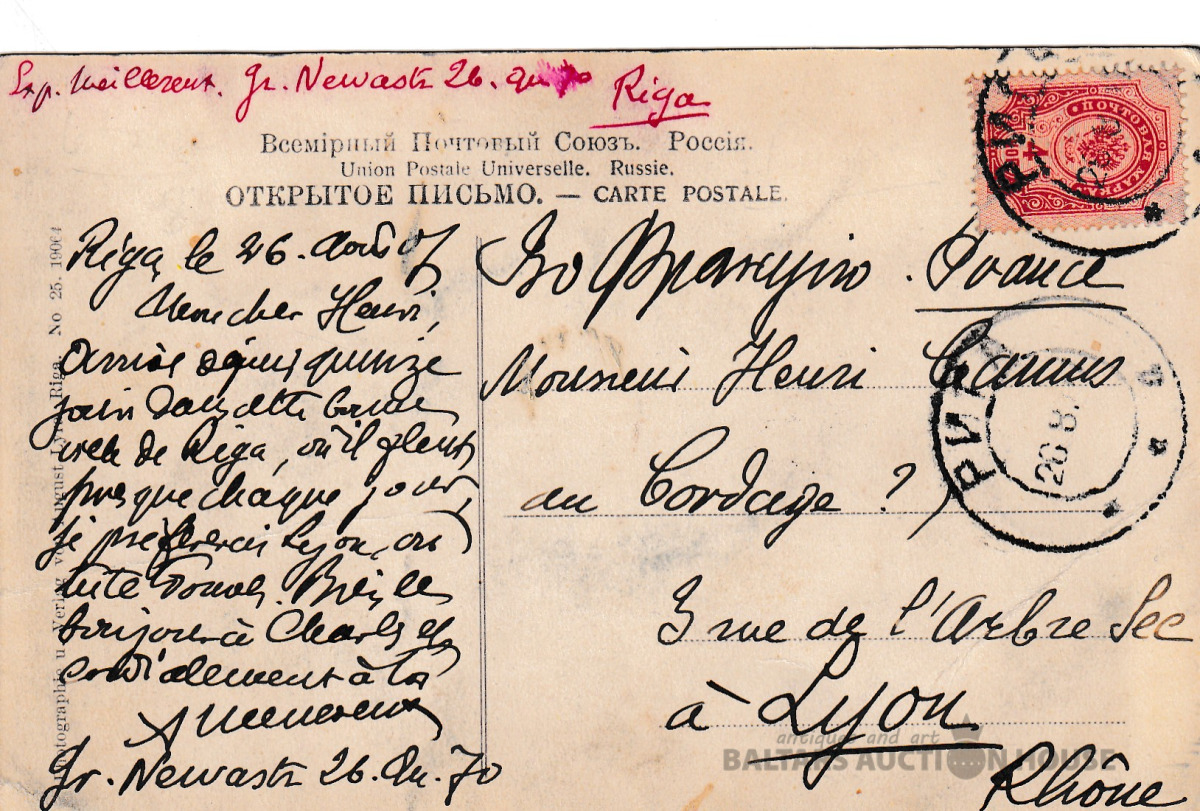 Exp. Meillereux. Gr. Newastr 26. qu
Riga
Всемірный Почтовый Союзъ. Россія.
Union Postale Universelle. Russie.
ОТКРЫТОЕ ПИСЬМО. — CARTE POSTALE.
Riga, le 26. Août 07
Mon cher Henri,
Arrivé depuis quinze
jours dans cette bonne
ville de Riga, où il pleut
presque chaque jour,
je préférerais Lyon, ou
toujours à Charles et
cordialement à toi
AMeillereux
Gr. Newastr 26. Qu. 70
Photographie u. Verlag von August Lyra, Riga. No 25. 1906
Во Францiю. France
Monsieur Henri Camus
au Cordage ?
3 rue de l'Arbre Sec
à Lyon
Rhône
ПОЧТОВАЯ МАРКА
4
РИГА
РИГА
26 8.
antiques and art
BALTARS AUCTION HOUSE